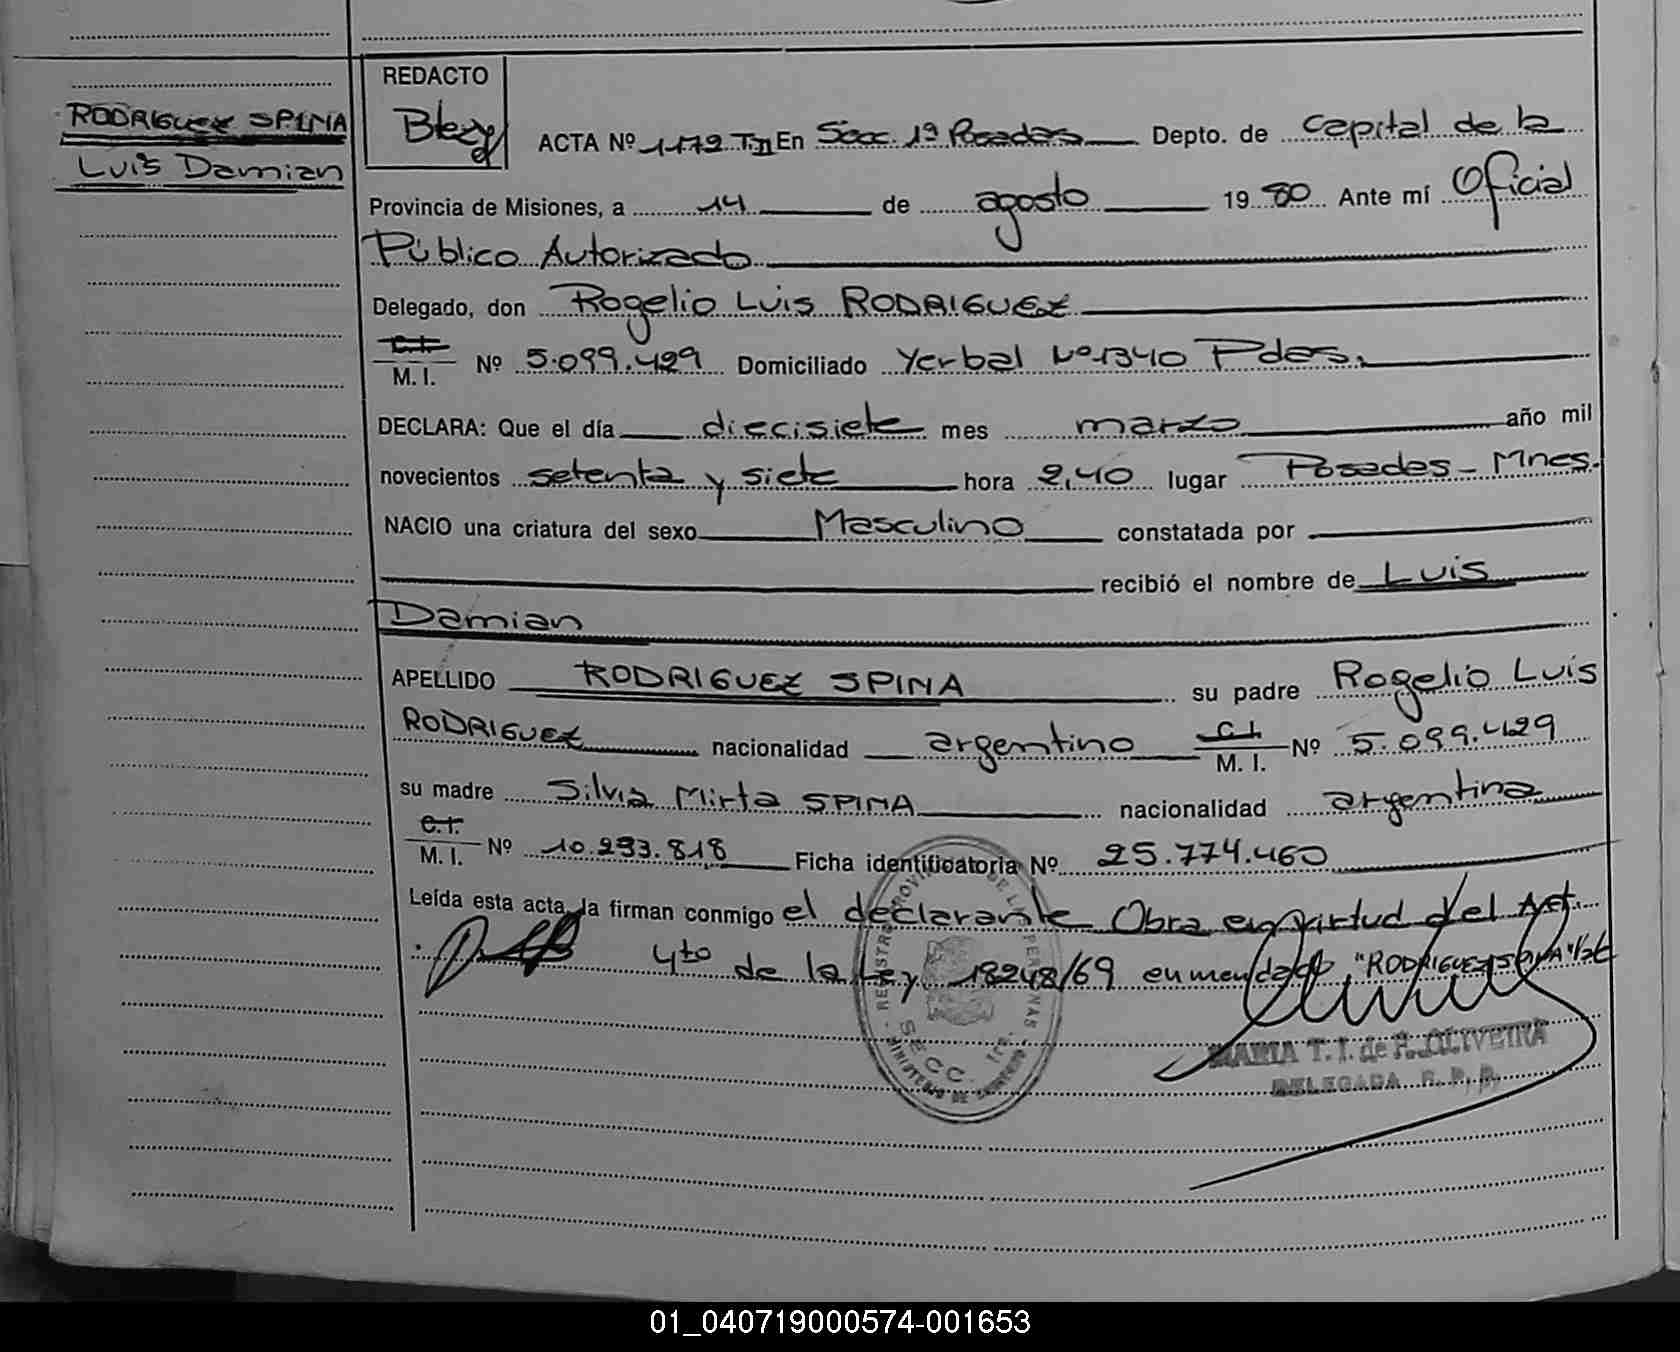 RODRIGUEZ SPINA
Luis Damian
REDACTO
ACTA Nº 1172 T.II En Secc. 1ª Posadas Depto. de Capital de la
Provincia de Misiones, a 14 de agosto 1980 Ante mí Oficial
Público Autorizado
Delegado, don Rogelio Luis RODRIGUEZ
C.I.
M. I. Nº 5.099.429 Domiciliado Yerbal Nº 1340 Pdas.
DECLARA: Que el día diecisiete mes marzo año mil
novecientos setenta y siete hora 2,40 lugar Posadas - Mnes.
NACIO una criatura del sexo Masculino constatada por
recibió el nombre de Luis
Damian
APELLIDO RODRIGUEZ SPINA su padre Rogelio Luis
RODRIGUEZ nacionalidad argentino C.I. M. I. Nº 5.099.429
su madre Silvia Mirta SPINA nacionalidad argentina
C.I.
M. I. Nº 10.233.818 Ficha identificatoria Nº 25.774.460
Leída esta acta, la firman conmigo el declarante Obra en virtud del Art.
4to de la Ley 18248/69 enmendado "RODRIGUEZ SPINA" Vale
REGISTRO PROVINCIAL DE LAS PERSONAS
SECC. 1ra.
MINISTERIO DE GOBIERNO
MARIA T. I. de F. OLIVEIRA
DELEGADA R. P. P.
01_040719000574-001653